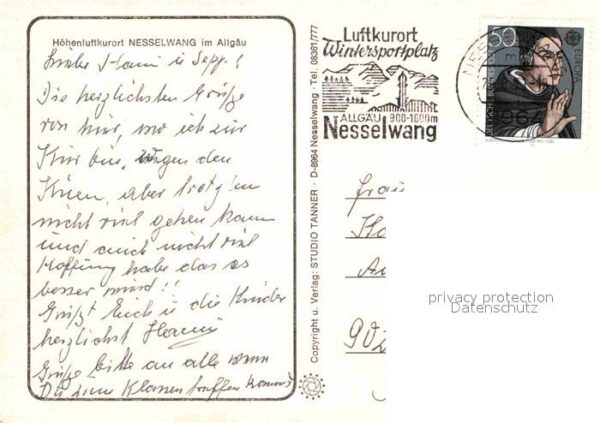 Höhenluftkurort NESSELWANG im Allgäu
Liebe Hanni u Sepp!
Die herzlichsten Grüße
von hier, wo ich zur
Kur bin, wegen den
Knien, aber trotzdem
nicht viel gehen kann
und auch nicht viel
Hoffnung habe das es
besser wird!!
Grüßt Euch u die Kinder
herzlichst Hanni
Grüße bitte an alle wenn
Du zum Klassentreffen kommst
Copyright u. Verlag: STUDIO TANNER · D-8964 Nesselwang · Tel. 08361/777
Luftkurort
Wintersportplatz
ALLGÄU 900-1600m
Nesselwang
50
EUROPA
DEUTSCHE BUNDESPOST
Frau
902
privacy protection
Datenschutz